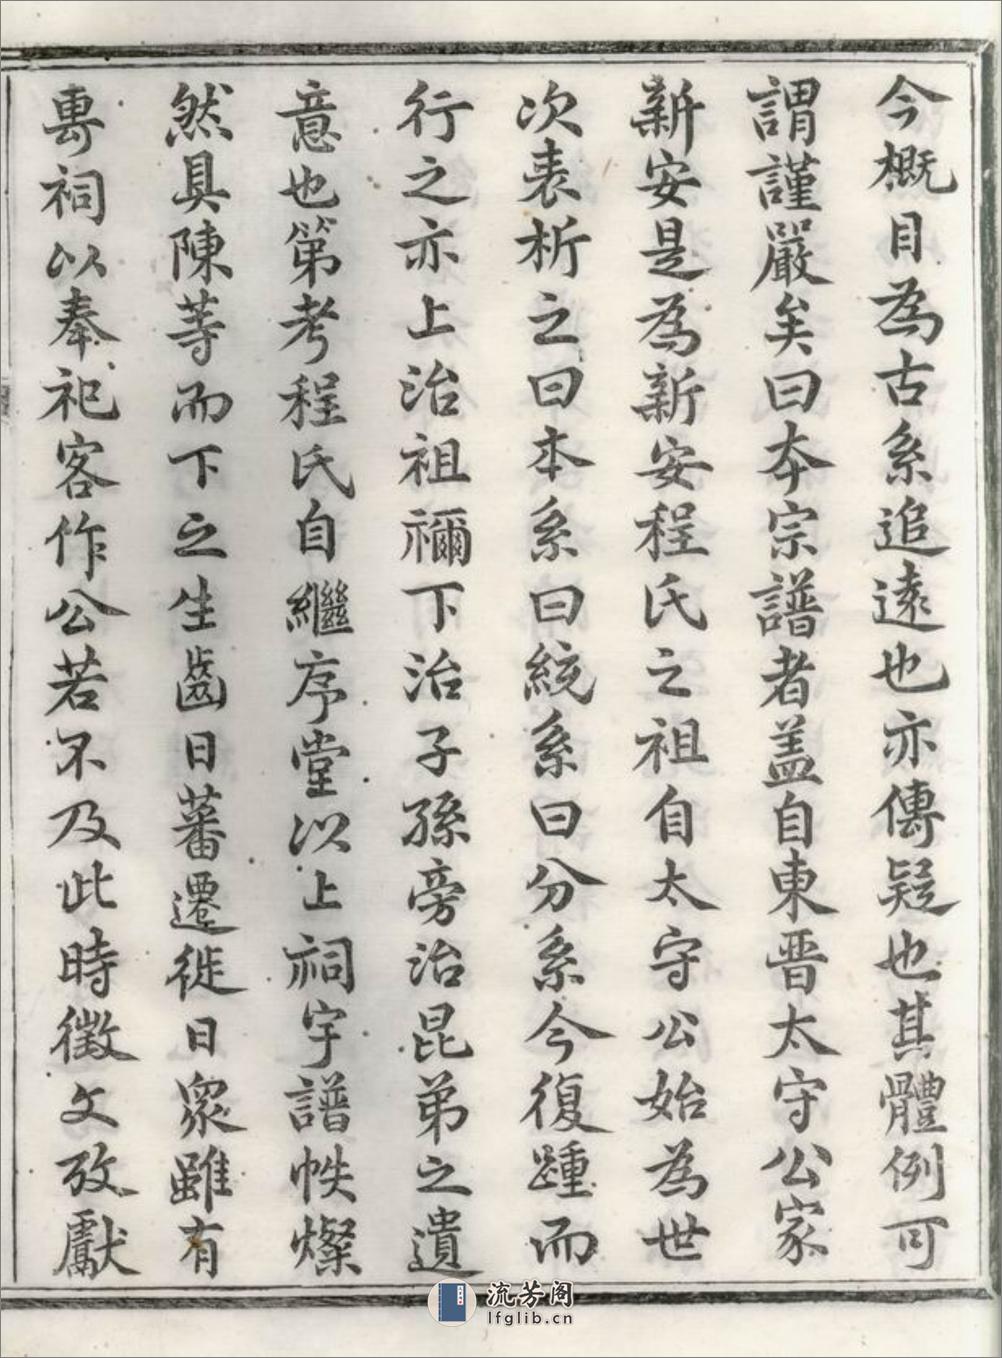 今概目為古系追遠也亦傳疑也其體例可
謂謹嚴矣曰本宗譜者盖自東晋太守公家
新安是為新安程氏之祖自太守公始為世
次表析之曰本系曰統系曰分系今復踵而
行之亦上治祖禰下治子孫旁治昆弟之遺
意也第考程氏自繼序堂以上祠宇譜帙燦
然具陳等而下之生齒日蕃遷徙日衆雖有
專祠以奉祀客作公若不及此時徵文攷獻
流芳阁
lfglib.cn